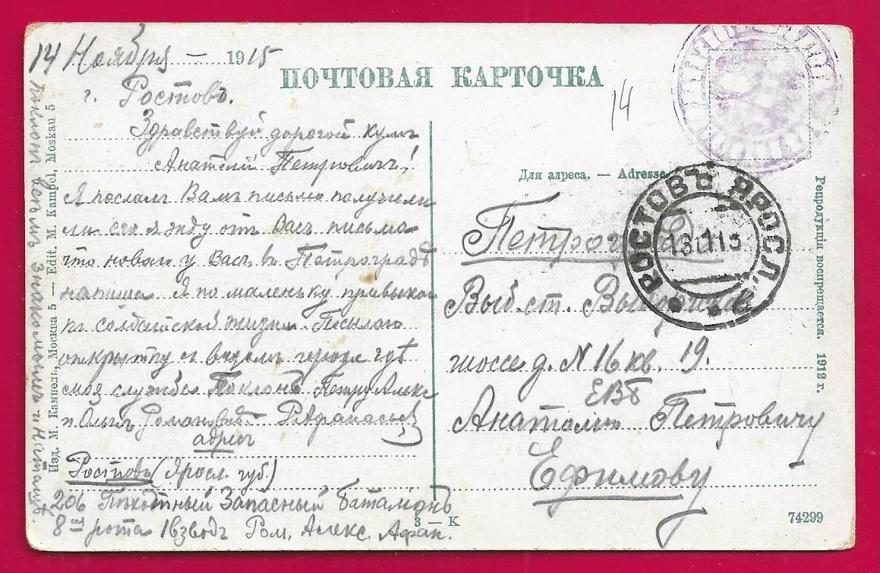 14 Ноября 1915
ПОЧТОВАЯ КАРТОЧКА
14
г. Ростовъ.
Здравствуй дорогой кумъ
Анатолій Петровичъ!
Я послалъ Вамъ письмо получили
ли его я жду отъ Васъ письма
что новаго у Васъ въ Петроградѣ
напиши Я по маленьку привыкаю
къ солдатской жизни Посылаю
открытку съ видомъ города гдѣ
моя служба Поклонъ Петру Алекс
и Ольгѣ Романовнѣ Р Афанасьев
адрес
Ростовъ (Яросл. губ.)
206 Пѣхотный Запасный Баталіонъ
8 ая рота 1 взводъ Ром. Алекс. Афан.
поклон всѣмъ знакомымъ
Изд. М. Кампель, Москва 5 — Edit. M. Kampel, Moskau 5
Для адреса. — Adresse
РОСТОВЪ ЯРОСЛ.
Петроград
Выб. ст.
шоссе д. N 16 кв. 19.
ЕВБ
Анатолію Петровичу
Ефимову
Репродукція воспрещается. 1912 г.
3 — K
74299